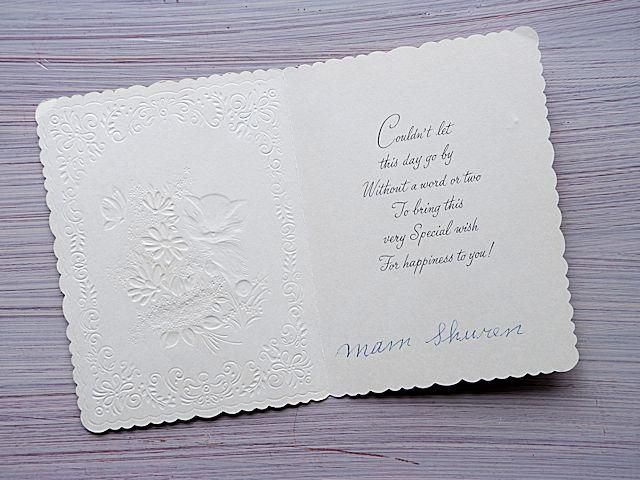 Couldn't let
this day go by
Without a word or two
To bring this
very Special wish
For happiness to you!
Mam Shuren